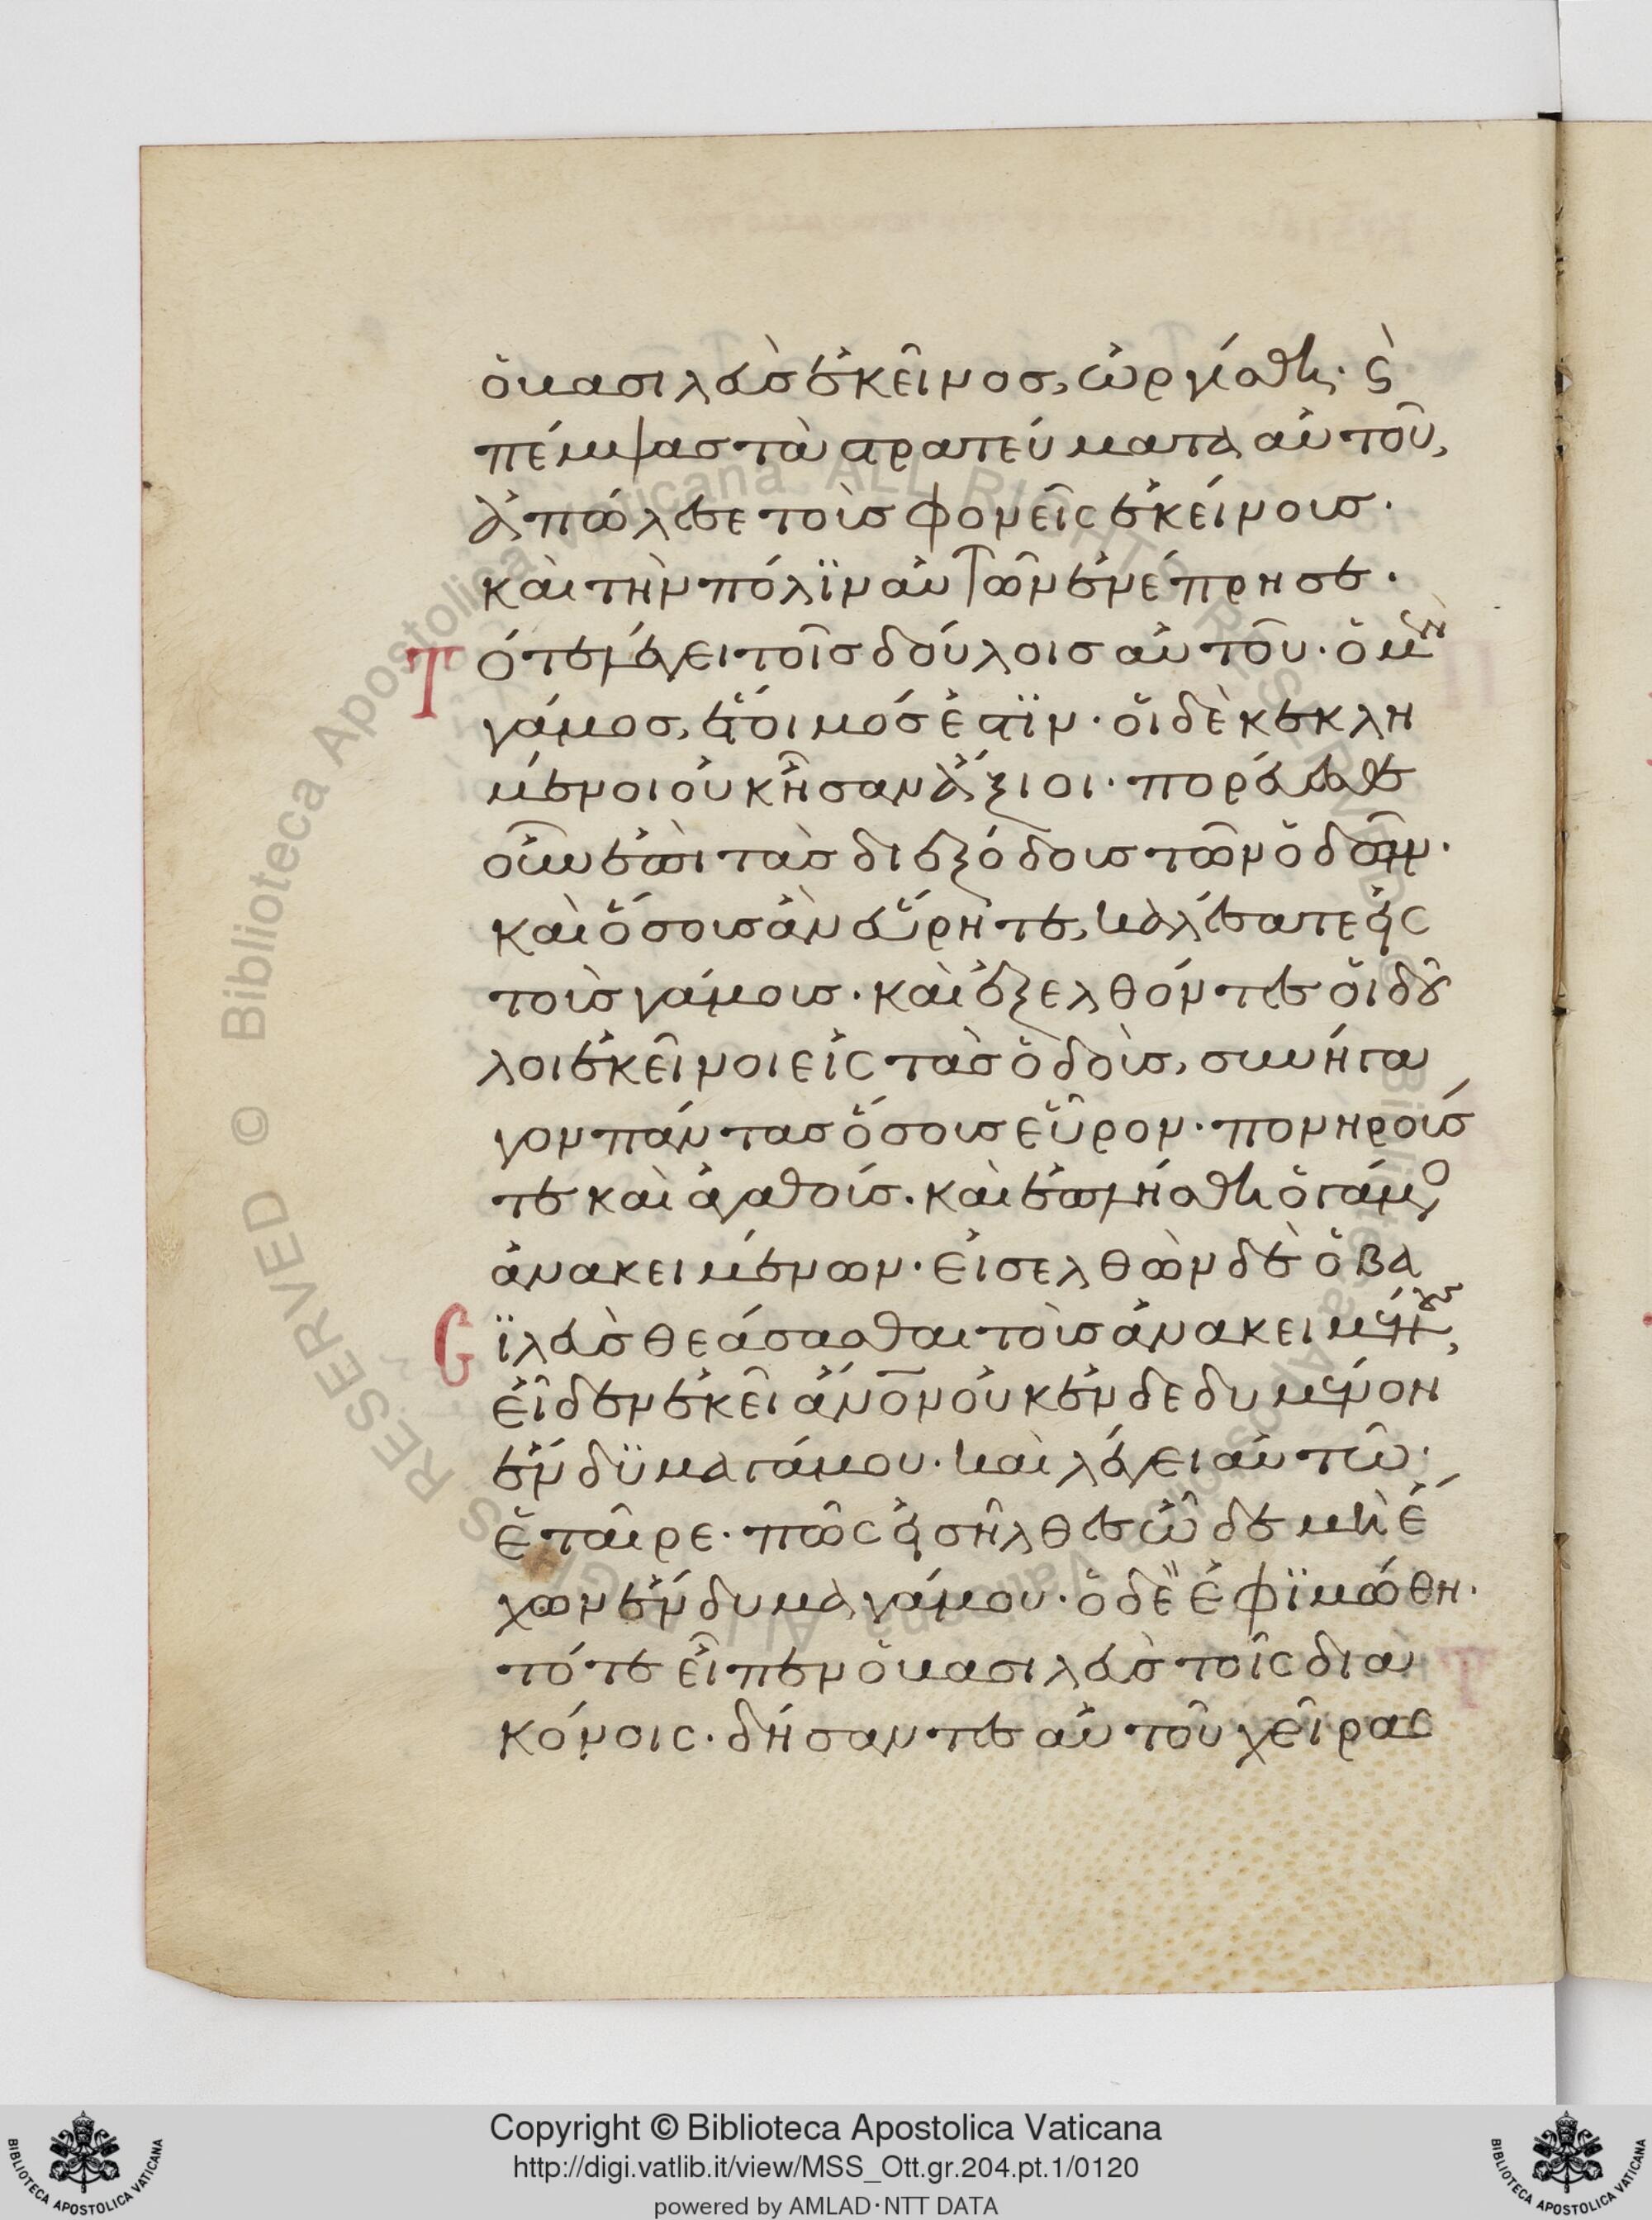 ὁ βασιλεὺς ἐκεῖνος, ὠργίσθη· ϛ̀
πέμψας τὰ στρατεύματα αὐτοῦ,
ἀπώλεσε τοὺς φονεῖς ἐκείνους·
καὶ τὴν πόλϊν αὐτῶν ἐνέπρησε·
Τότε λέγει τοῖς δούλοις αὐτοῦ· ὁ μὲν
γάμος, ἕτοιμός ἐστϊν· οἱ δὲ κεκλη
μένοι οὐκ ἦσαν ἄξιοι· πορεύεσθε
οὖν ἐπὶ τὰς διεξόδους τῶν ὁδῶν·
καὶ ὅσους ἂν εὕρητε, καλέσατε εἰς
τοὺς γάμους· καὶ ἐξελθόντες οἱ δοῦ
λοι ἐκεῖνοι εἰς τὰς ὁδοὺς, συνήγα
γον πάντας ὅσους εὗρον· πονηρούς
τε καὶ ἀγαθούς· καὶ ἐπλήσθη ὁ γάμος
ἀνακειμένων· εἰσελθὼν δὲ ὁ βα
Cϊλεὺς θεάσασθαι τοὺς ἀνακειμένους,
εἶδεν ἐκεῖ ἄνον οὐκ ἐνδεδυμένον
ἔνδϋμα γάμου· καὶ λέγει αὐτῶ·
ἑταῖρε· πῶς εἰσῆλθες ὧδε μὴ ἔ
χων ἔνδυμα γάμου· ὁ δὲ ἐφϊμώθη·
τότε εἶπεν ὁ βασιλεὺς τοῖς δια
κόνοις· δήσαντες αὐτοῦ χεῖρας
Copyright © Biblioteca Apostolica Vaticana
http://digi.vatlib.it/view/MSS_Ott.gr.204.pt.1/0120
powered by AMLAD·NTT DATA